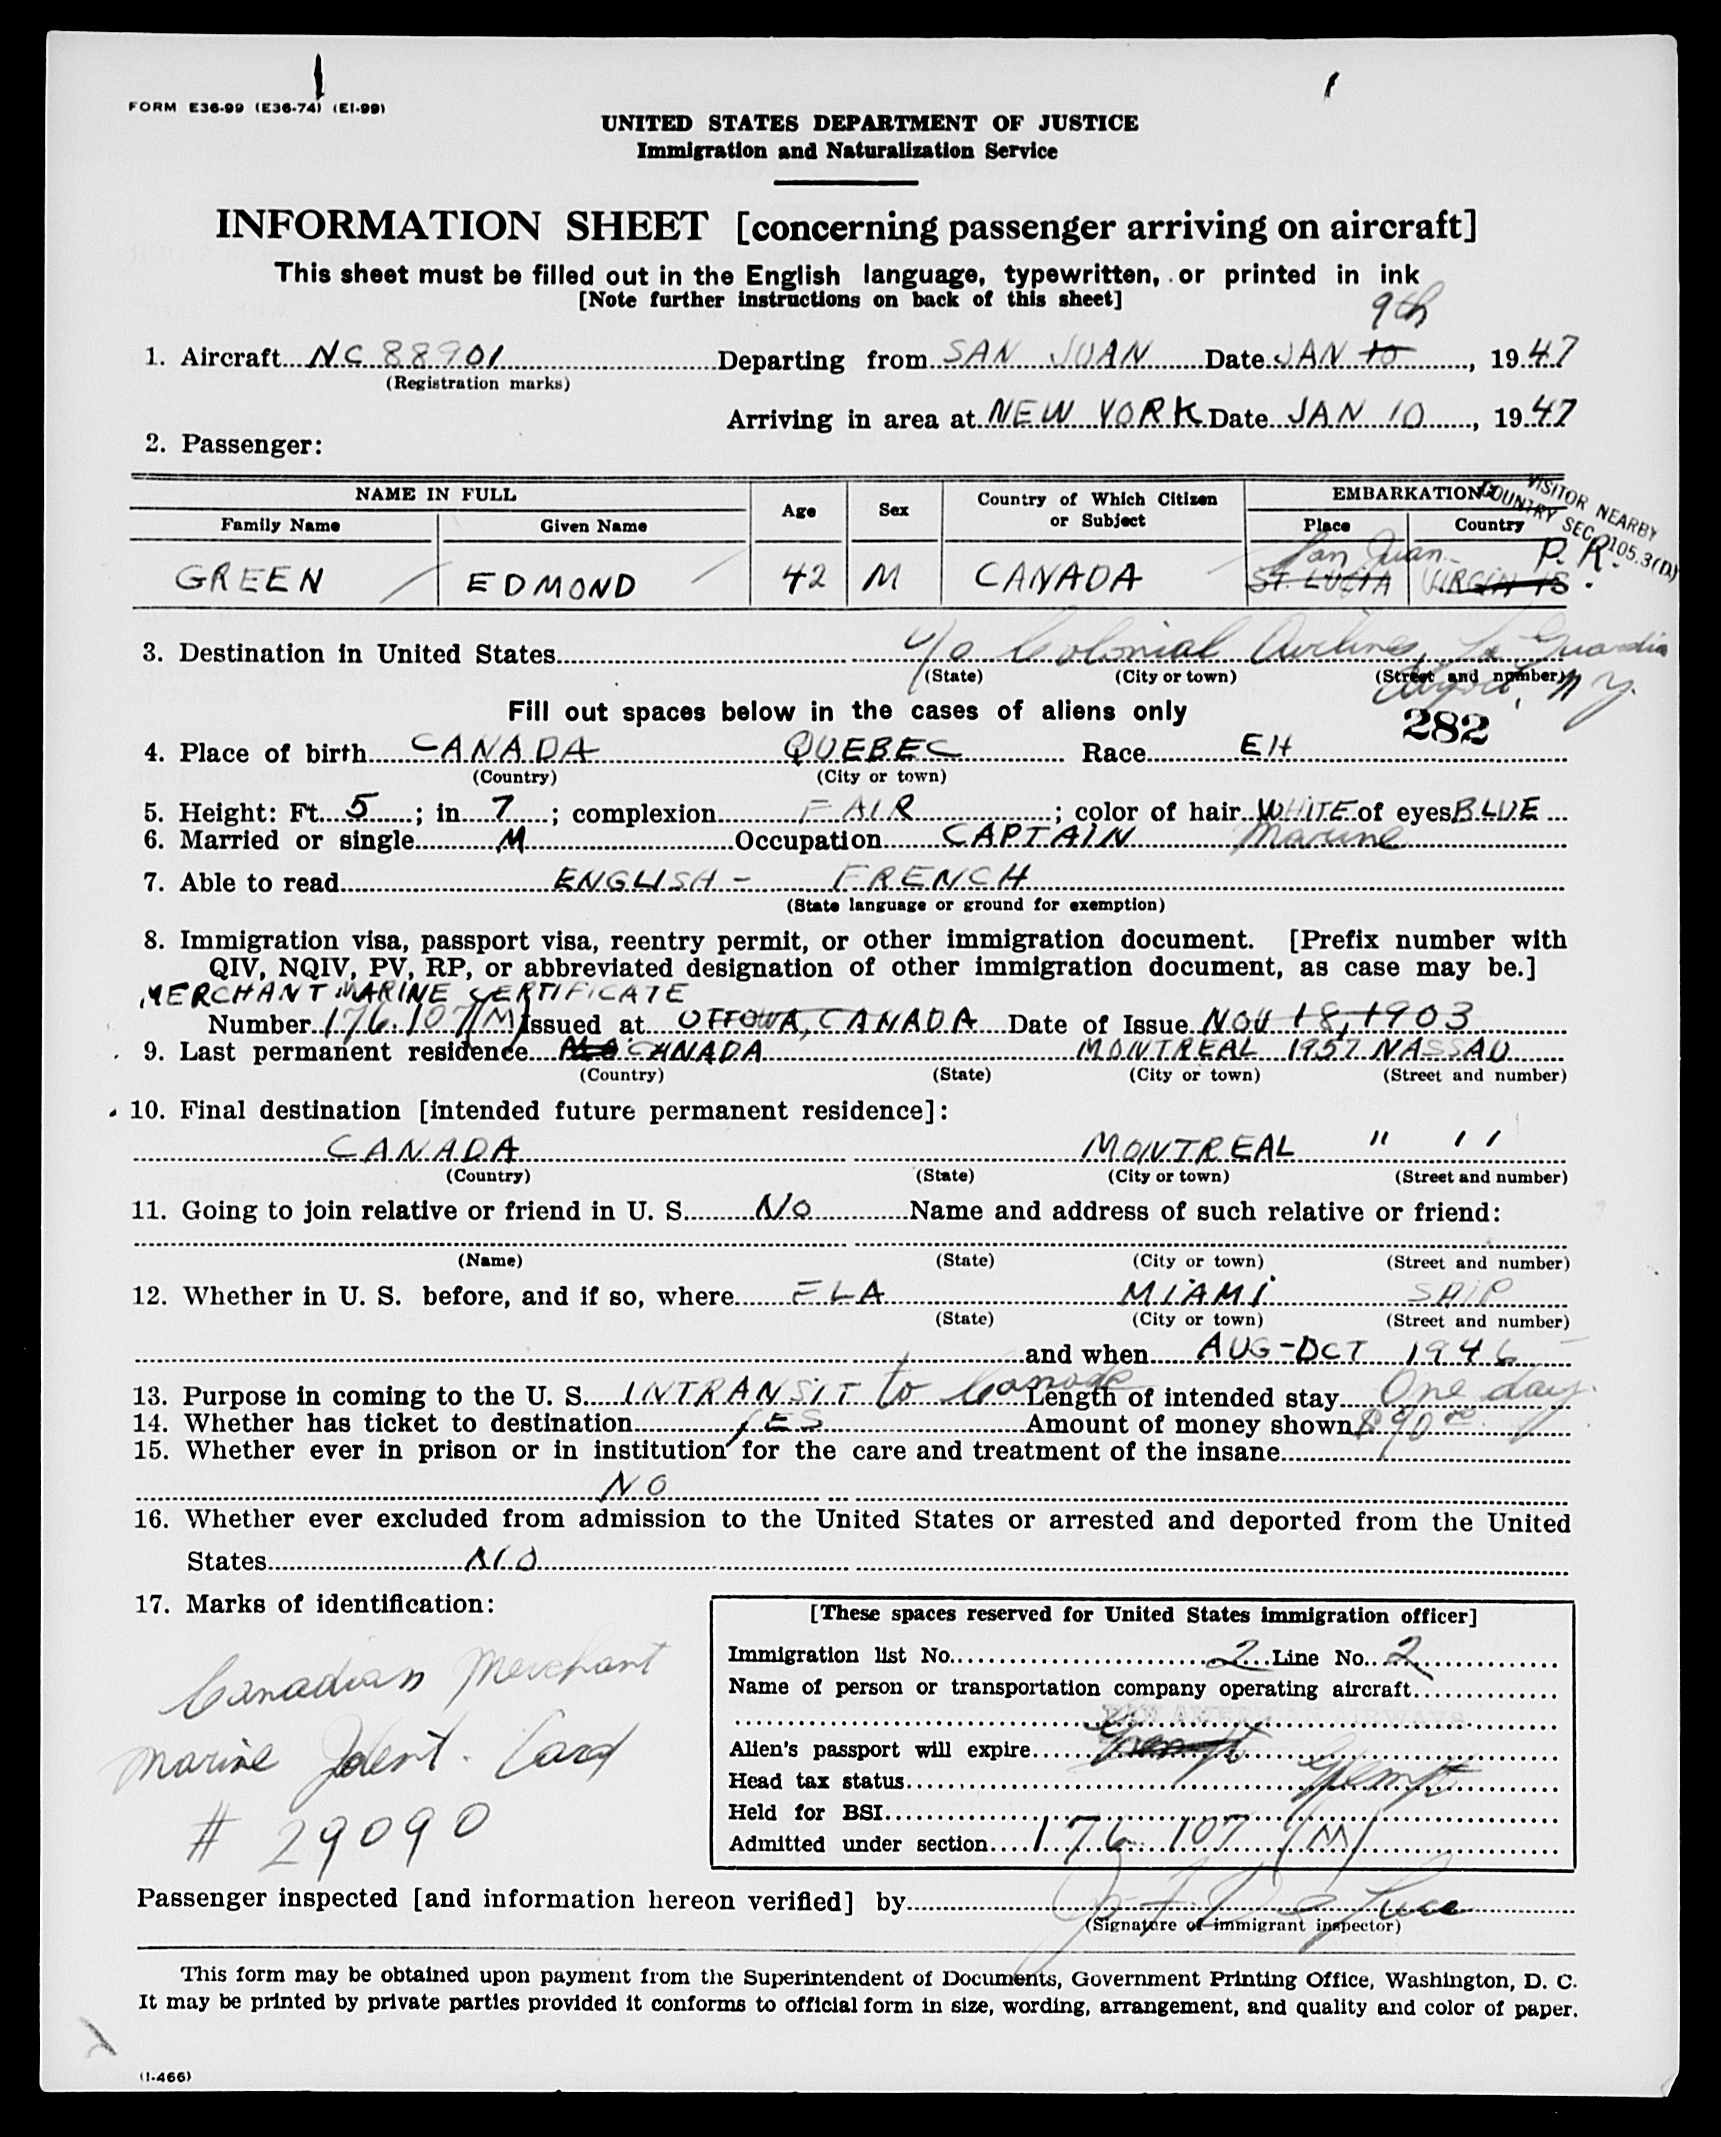 FORM E36-99 (E36-74) (EI-99)
UNITED STATES DEPARTMENT OF JUSTICE
Immigration and Naturalization Service
INFORMATION SHEET [concerning passenger arriving on aircraft]
This sheet must be filled out in the English language, typewritten, or printed in ink
[Note further instructions on back of this sheet]
9th
1. Aircraft NC 88901 Departing from SAN JUAN Date JAN 10, 1947
(Registration marks)
Arriving in area at NEW YORK Date JAN 10, 1947
2. Passenger:
VISITOR NEARBY
COUNTRY SEC 105.3(D)
NAME IN FULL Age Sex Country of Which Citizen or Subject EMBARKATION
Family Name Given Name Place Country
San Juan P.R.
GREEN EDMOND 42 M CANADA ST. LUCIA VIRGIN IS.
3. Destination in United States c/o Colonial Airlines, La Guardia
(State) (City or town) (Street and number)
Airport, N.Y.
Fill out spaces below in the cases of aliens only
282
4. Place of birth CANADA QUEBEC Race EH
(Country) (City or town)
5. Height: Ft. 5; in. 7; complexion FAIR; color of hair WHITE of eyes BLUE
6. Married or single M Occupation CAPTAIN Marine
7. Able to read ENGLISH - FRENCH
(State language or ground for exemption)
8. Immigration visa, passport visa, reentry permit, or other immigration document. [Prefix number with
QIV, NQIV, PV, RP, or abbreviated designation of other immigration document, as case may be.]
MERCHANT MARINE CERTIFICATE
Number 176.107(M) Issued at OTTOWA, CANADA Date of Issue NOV 18, 1903
9. Last permanent residence CANADA MONTREAL 1957 NASSAU
(Country) (State) (City or town) (Street and number)
10. Final destination [intended future permanent residece]:
CANADA MONTREAL " ' '
(Country) (State) (City or town) (Street and number)
11. Going to join relative or friend in U. S. NO Name and address of such relative or friend:
(Name) (State) (City or town) (Street and number)
12. Whether in U. S. before, and if so, where FLA MIAMI SHIP
(State) (City or town) (Street and number)
and when AUG-OCT 1946
13. Purpose in coming to the U. S. INTRANSIT to Canada Length of intended stay One day
14. Whether has ticket to destination YES Amount of money shown $90.00
15. Whether ever in prison or in institution for the care and treatment of the insane
NO
16. Whether ever excluded from admission to the United States or arrested and deported from the United
States NO
17. Marks of identification:
Canadian Merchant
Marine Ident. Card
# 29090
[These spaces reserved for United States immigration officer]
Immigration list No. 2 Line No. 2
Name of person or transportation company operating aircraft
PAN AMERICAN AIRWAYS
Alien's passport will expire Exempt
Head tax status Exempt
Held for BSI
Admitted under section 176.107 (M)
Passenger inspected [and information hereon verified] by
(Signature of immigrant inspector)
This form may be obtained upon payment from the Superintendent of Documents, Government Printing Office, Washington, D. C.
It may be printed by private parties provided it conforms to official form in size, wording, arrangement, and quality and color of paper.
(I-466)